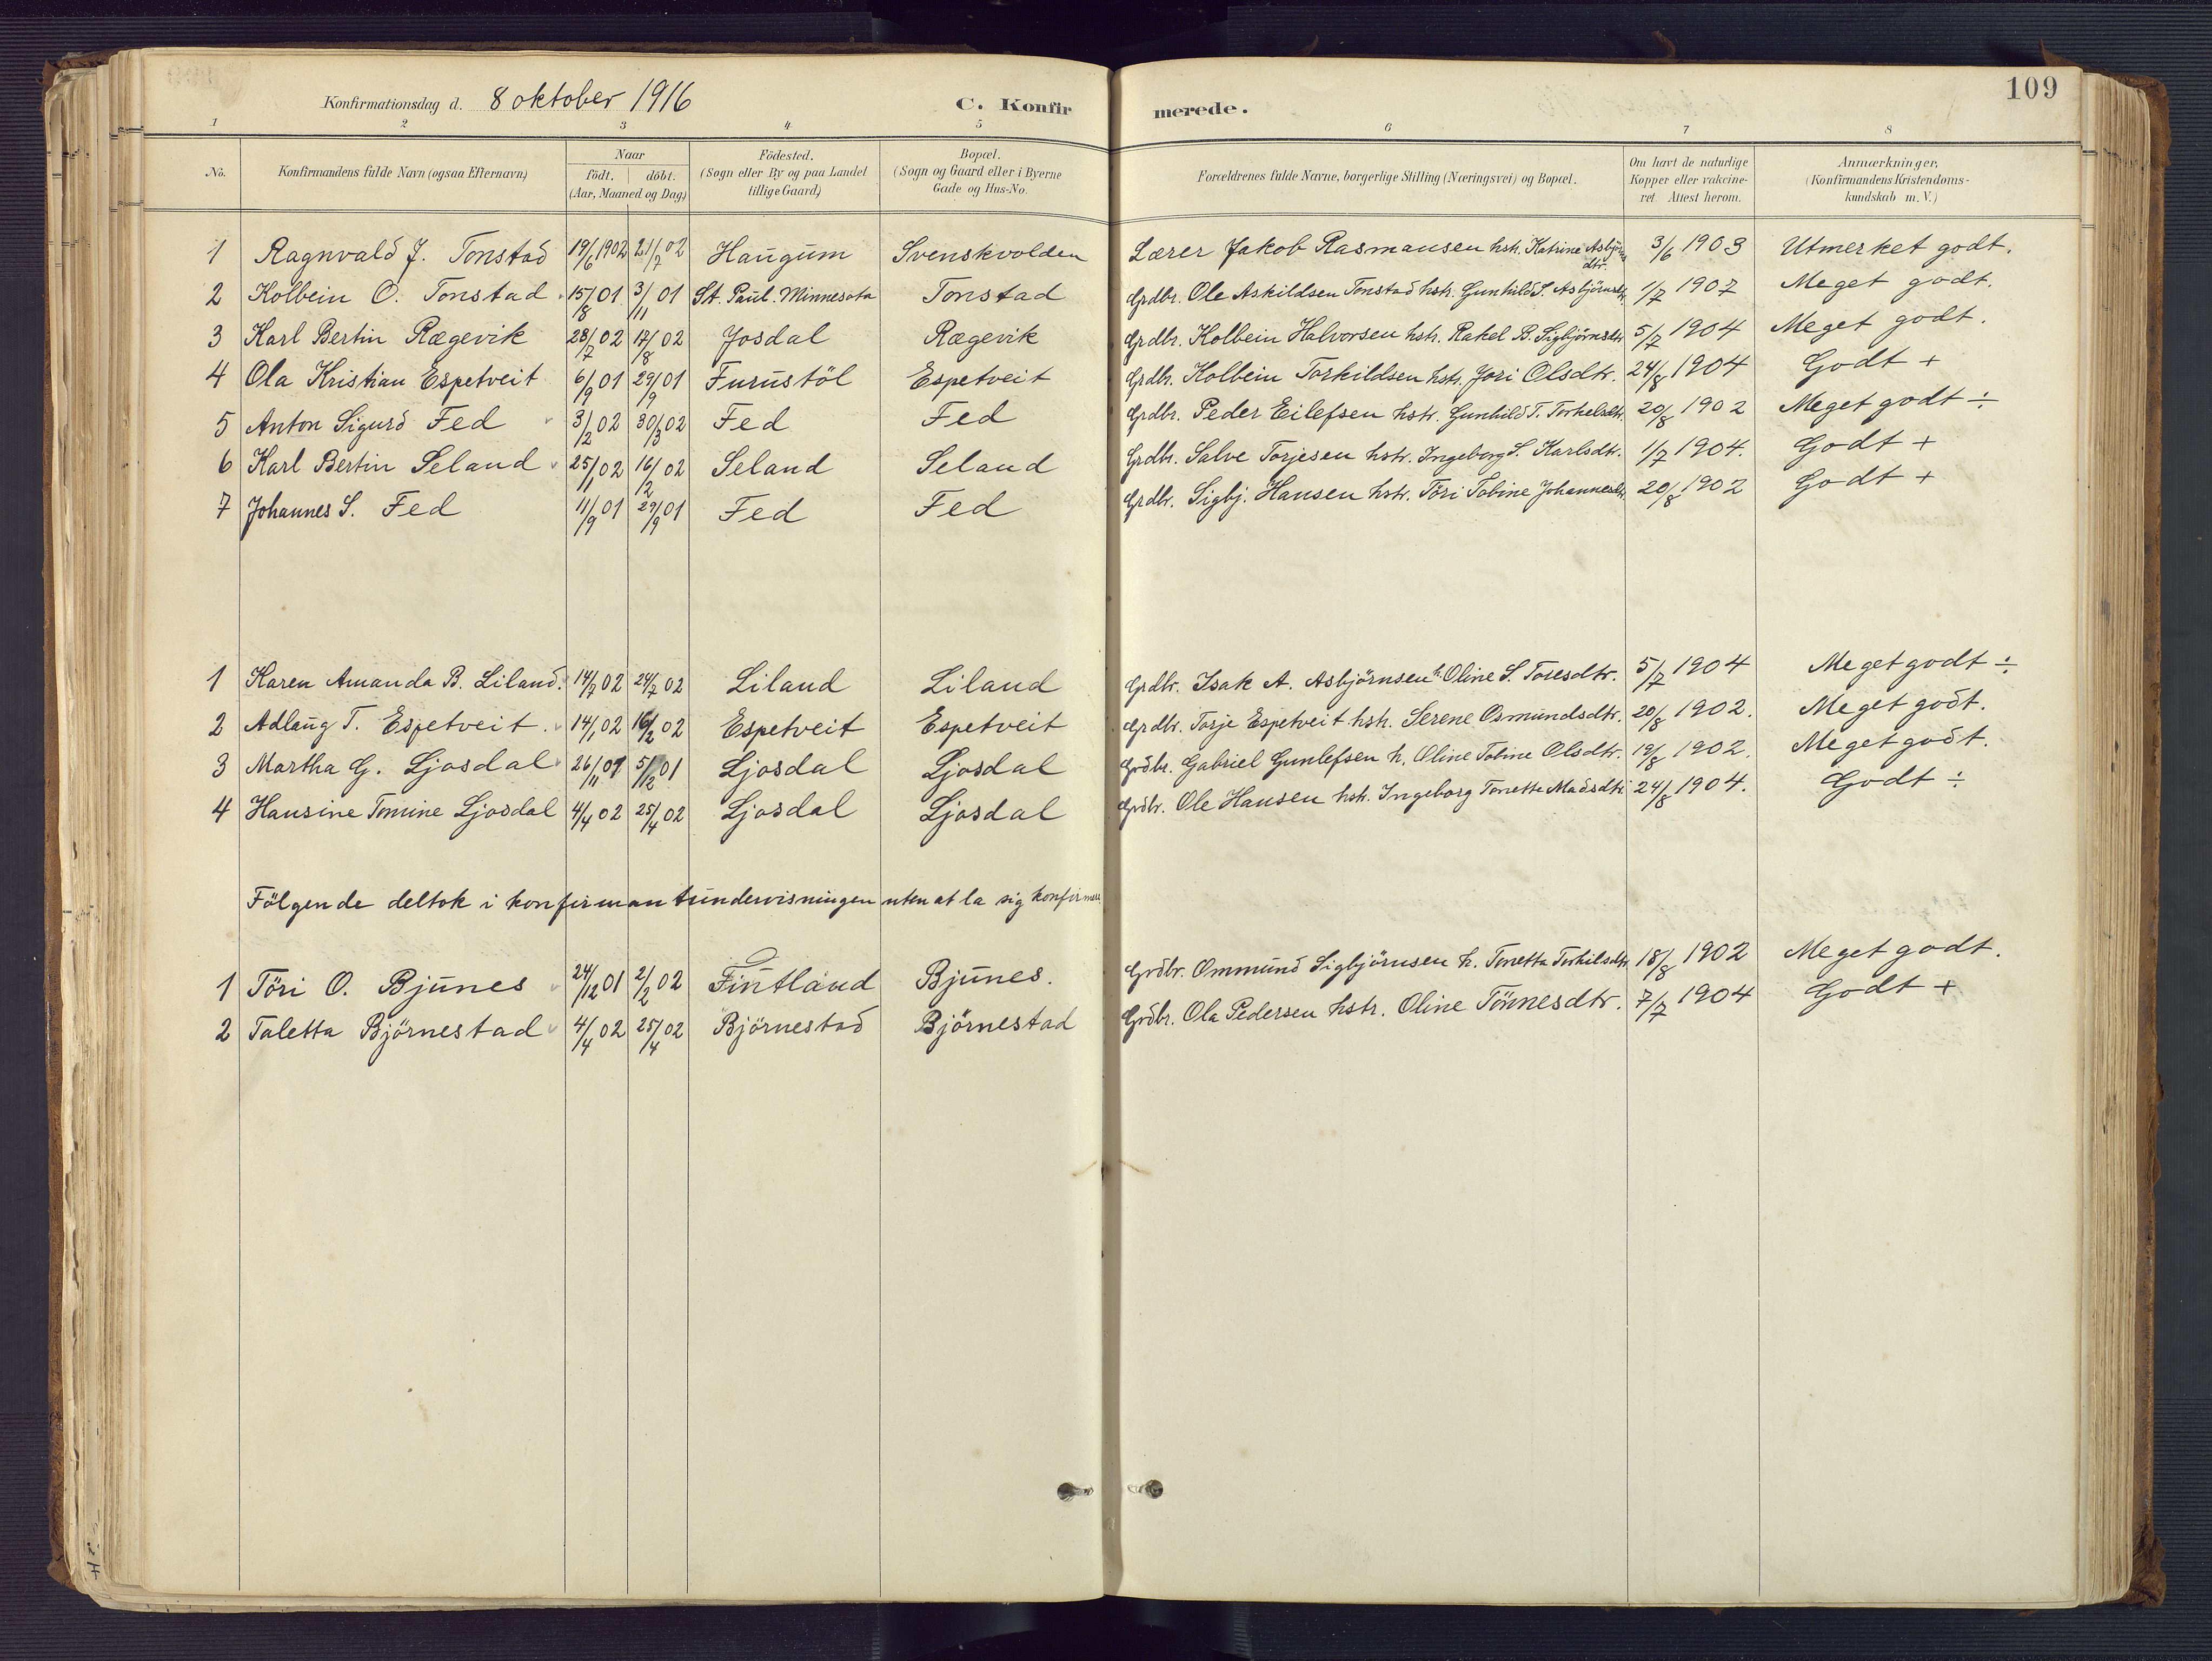 Konfirmationsdag d. 8 oktober 1916 C. Konfir merede. 109
1 2 3 4 5 6 7 8
No. Konfirmandens fulde Navn (ogsaa Efternavn) Naar födt. döbt. (Aar, Maaned og Dag) Födested. (Sogn eller By og paa Landet tillige Gaard) Bopæl. (Sogn og Gaard eller i Byerne Gade og Hus-No. Forældrenes fulde Navne, borgerlige Stilling (Næringsvei) og Bopæl. Om havt de naturlige Kopper eller vakcineret Attest herom. Anmærkninger, (Konfirmandens Kristendomskundskab m. V.)
1 Ragnvald J. Tonstad 19/6 1902 21/7 02 Haugum Svenskvolden Lærer Jakob Rasmausen hstr. Katrine Asbjörns dtr. 3/6 1903 Utmerket godt.
2 Kolbein O. Tonstad 15/8 01 3/11 01 St. Paul. Minnesota Tonstad Grdbr. Ole Askildsen Tonstad hstr. Gunhild S. Asbjörnsdtr. 1/7 1907 Meget godt.
3 Karl Bertin Rægevik 28/7 02 17/8 02 Josdal Rægevik Grdbr. Kolbein Halvorsen hstr. Rakel B. Sigbjörnsdtr. 5/7 1904 Meget godt.
4 Ola Kristian Espetveit 6/9 01 29/9 01 Furustöl Espetveit Grdbr. Kolbein Torkildsen hstr. Jori Olsdtr. 24/8 1904 Godt +
5 Anton Sigurd Fed 3/2 02 30/3 02 Fed Fed Grdbr. Peder Eilefsen hstr. Gunhild T. Torkelsdtr. 20/8 1902 Meget godt ÷
6 Karl Bertin Seland 25/1 02 16/2 02 Seland Seland Grdbr. Salve Torjesen hstr. Ingeborg S. Karlsdtr. 1/7 1904. Godt +
7 Johannes S. Fed 11/9 01 29/9 01 Fed Fed Grdbr. Sigbj. Hansen hstr. Töri Tobine Johannesdtr. 20/8 1902 Godt +
1 Karen Amanda B. Liland. 14/7 02 24/7 02 Liland Liland Grdbr. Isak A. Asbjörnsen h. Oline S. Tosesdtr. 5/7 1904 Meget godt ÷
2 Adlaug T. Espetveit. 14/1 02 16/2 02 Espetveit Espetveit Grdbr. Torje Espetveit hstr. Serene Osmundsdtr. 20/8 1902. Meget godt.
3 Martha G. Ljosdal 26/11 01 5/12 01 Ljosdal Ljosdal Grdbr. Gabriel Gunlefsen h. Oline Tobine Olsdtr. 19/8 1902. Meget godt.
4 Hansine Tomine Ljosdal 4/4 02 25/4 02 Ljosdal Ljosdal Grdbr. Ole Hansen hstr. Ingeborg Tonette Madsdtr 24/8 1904. Godt ÷
Fölgende deltok i konfirmantundervisningen uten at la sig konfirmere
1 Töri O. Bjunes 24/12 01 2/2 02 Fintland Bjunes. Grdbr. Ommund Sigbjörnsen h. Tonetta Torkilsdtr. 18/8 1902 Meget godt.
2 Taletta Björnestad 4/4 02 25/4 02 Björnestad Björnestad Grdbr. Ola Pedersen hstr. Oline Tönnesdtr. 7/7 1904 Godt +